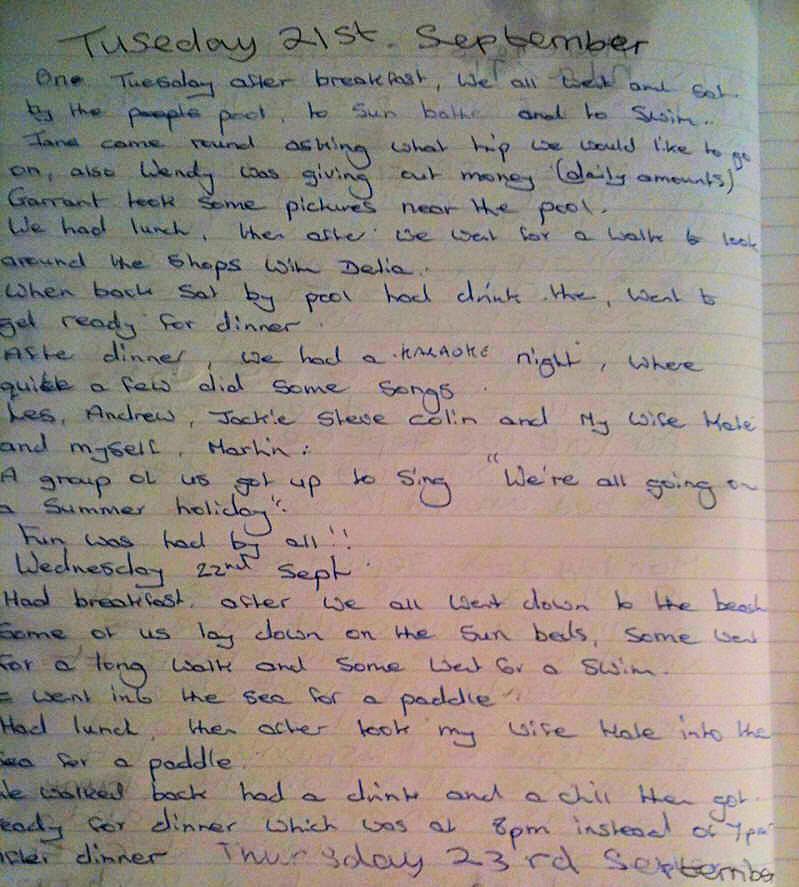 Tuseday 21st. September
One Tuesday after breakfast, We all went and sat
by the people pool, to Sun bathe and to Swim..
Jane came round asking what trip we would like to go
on, also Wendy was giving out money (daily amounts)
Garrant took some pictures near the pool.
We had lunch, then after we went for a walk to look
around the Shops With Delia.
When back Sat by pool had drink the, Went to
get ready for dinner.
Afte dinner, we had a KARAOKE night, where
quick a few did Some Songs.
Les, Andrew, Jackie Steve Colin and My Wife Kate
and myself, Martin:
A group of us got up to Sing "We're all going on
a Summer holiday".
Fun was had by all!!
Wednesday 22nd Sept.
Had breakfast, after we all went down to the beach
Some of us lay down on the Sun beds, Some went
for a long walk and Some went for a Swim.
I went into the sea for a paddle.
Had lunch, then after took my wife Kate into the
sea for a paddle.
We walked back had a drink and a chill then got
ready for dinner which was at 8pm instead of 7pm
After dinner Thursday 23rd September